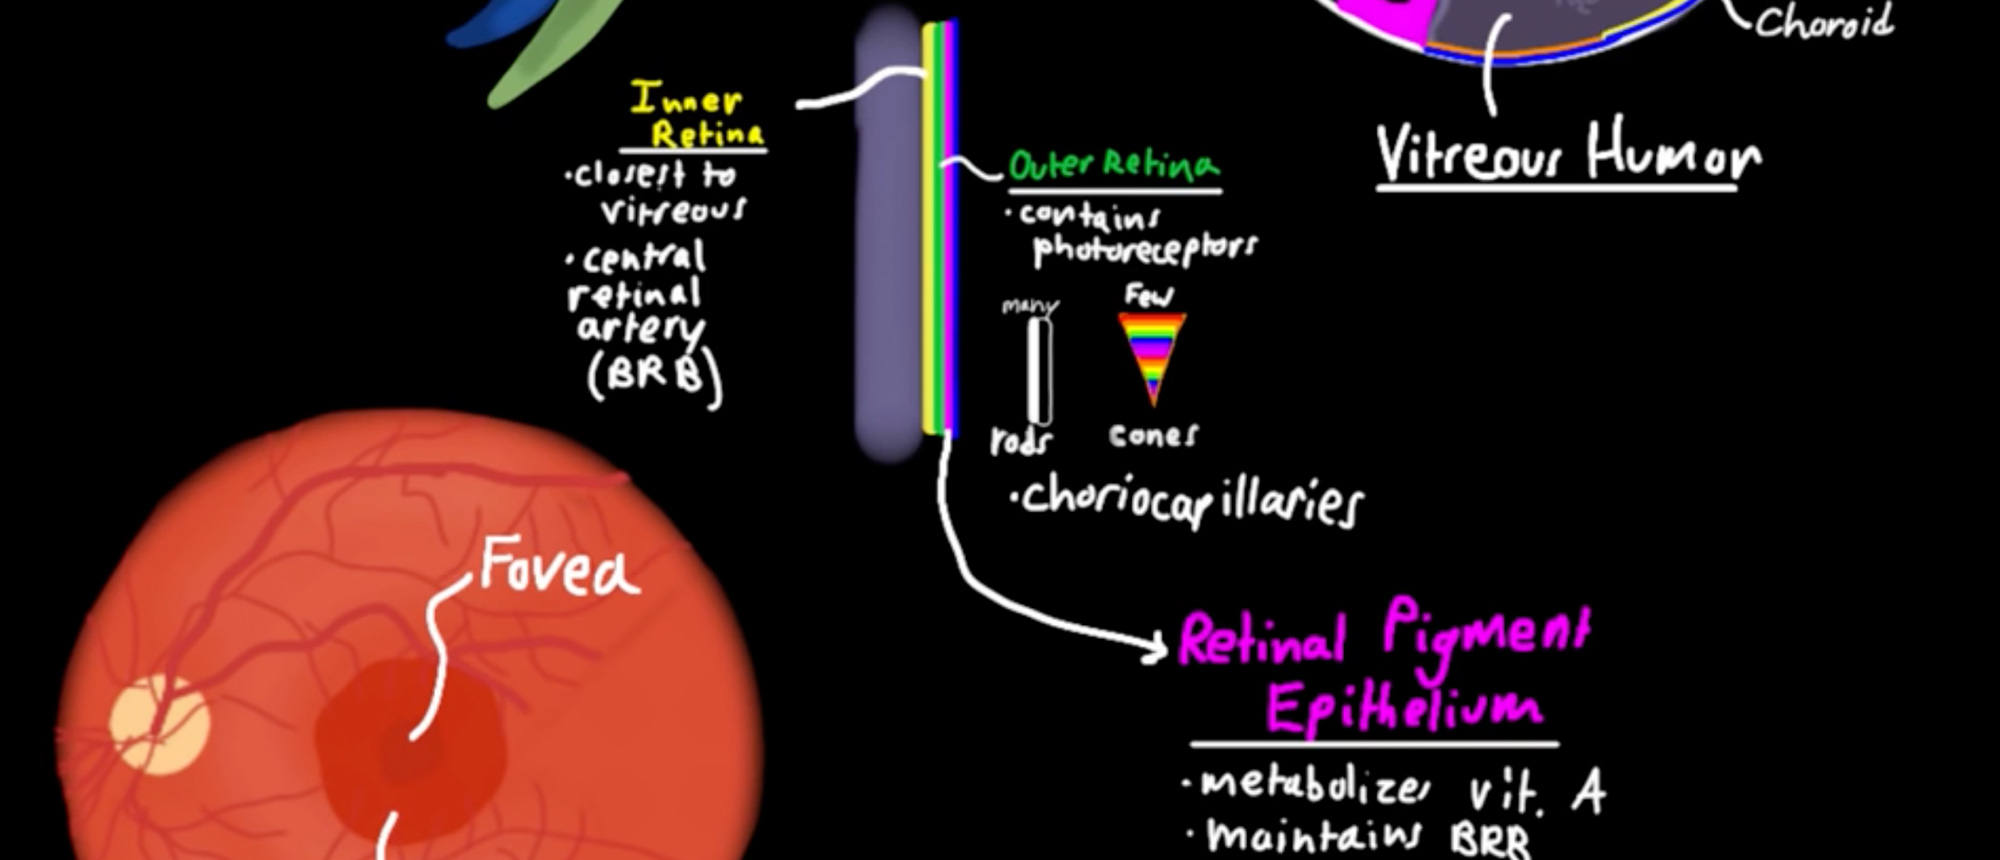 Choroid
Vitreous Humor
Inner
Retina
•closest to
vitreous
•central
retinal
artery
(BRB)
Outer Retina
•contains
photoreceptors
many
Few
rods
cones
•choriocapillaries
Fovea
Retinal Pigment
Epithelium
•metabolizes vit. A
•maintains BRB